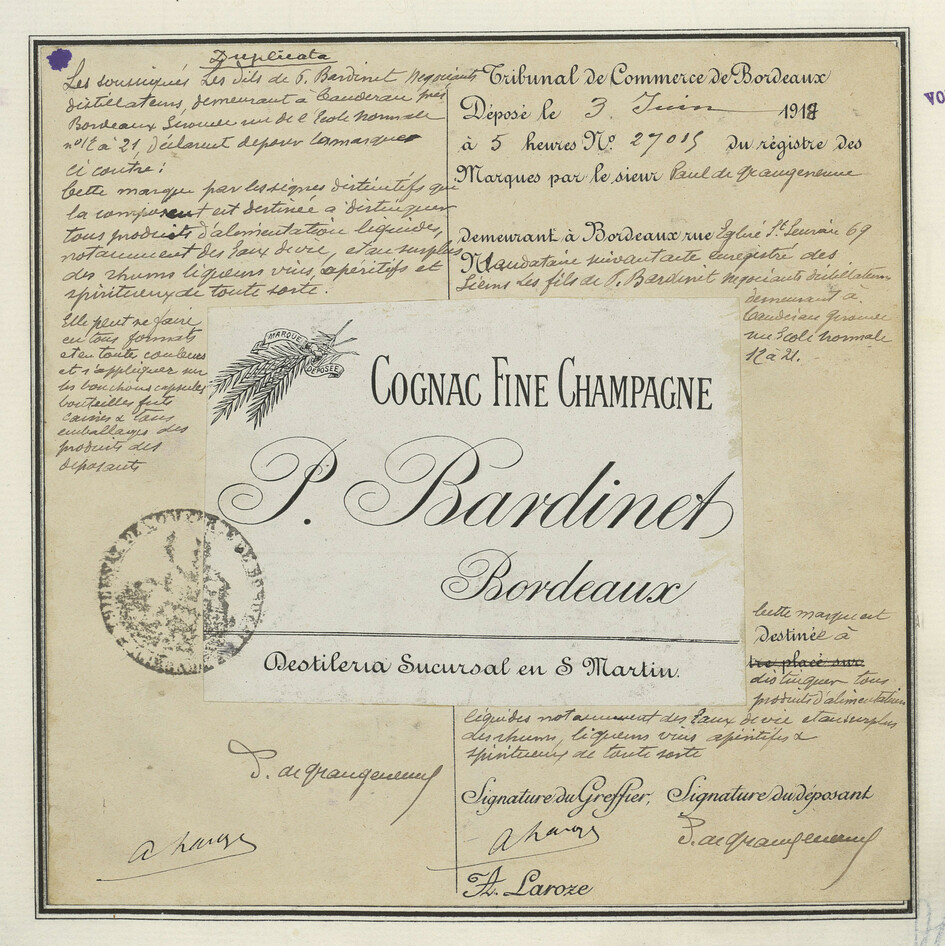 Duplicata
Les soussignés Les fils de P. Bardinet Négociants
distillateurs, demeurant à Caudéran près
Bordeaux Gironde rue de l'Ecole normale
n° 12 à 21, Déclarent déposer la marque
ci contre :
Cette marque par les signes distinctifs qui
la composent est destinée à distinguer
tous produits d'alimentation liquides,
notamment des Eaux de vie, et au surplus
des rhums liqueurs vins, apéritifs et
spiritueux de toute sorte.
Elle peut se faire
en tous formats
et en toute couleurs
et s'appliquer sur
les bouchons capsules
bouteilles futs
caisses & tous
emballages des
produits des
déposants
Tribunal de Commerce de Bordeaux
Déposé le 3 Juin 1918
à 5 heures N° 27015 du régistre des
Marques par le sieur Paul de Grangeneuve
demeurant à Bordeaux rue Eglise St Seurin 69
Mandataire suivant acte enregistré des
Siens Les fils de P. Bardinet Négociants distillateurs
demeurant à
Caudéran Gironde
rue Ecole normale
12 à 21.
MARQUE
DÉPOSÉE
COGNAC FINE CHAMPAGNE
P. Bardinet
Bordeaux
Destileria Sucursal en S Martin.
Cette marque est
Destinée à
tre placé sur
distinguer tous
produits d'alimentation
liquides notamment des Eaux de vie et au surplus
des rhums, liqueurs vins apéritifs &
spiritueux de toute sorte
P. de Grangeneuve
Signature du Greffier, Signature du déposant
P. de Grangeneuve
A. Laroze
VO